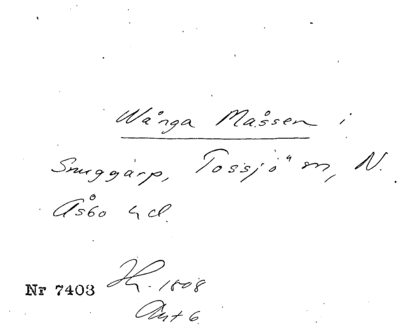 Wånga Måssen i
Snuggarp, Tossjö m, N.
Åsbo hd.
Nr 7403
Hh. 1808
Ant 6